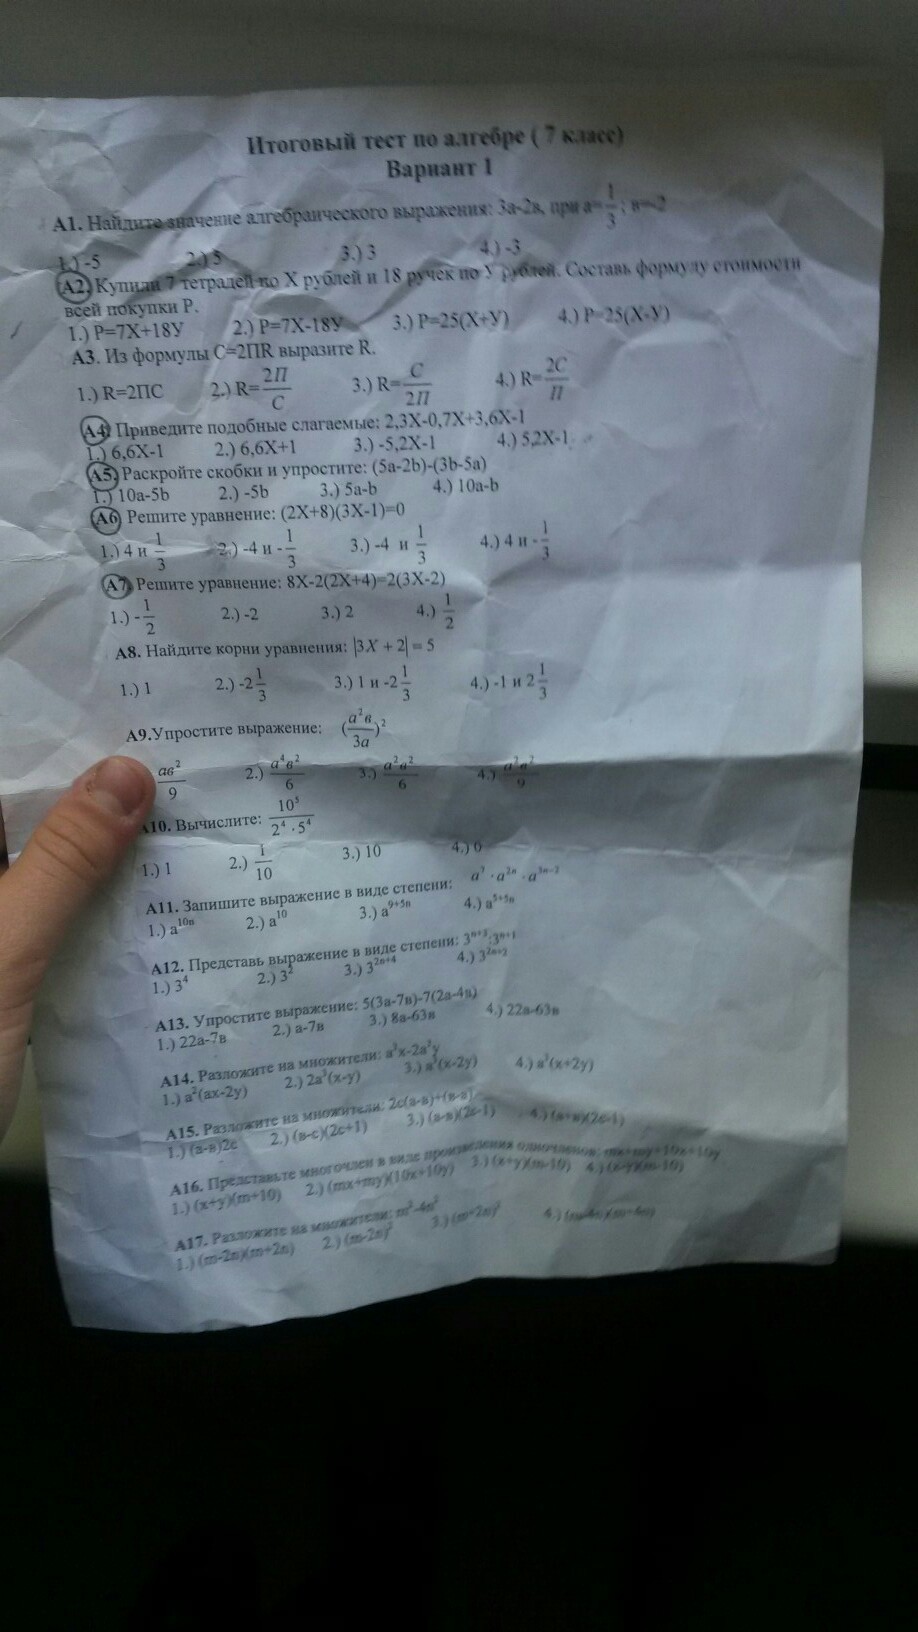 Итоговый тест по алгебре ( 7 класс)
Вариант 1
А1. Найдите значение алгебраического выражения: 3а-2в, при а=1/3; в=-2
1.) -5 2.) 5 3.) 3 4.) -3
А2. Купили 7 тетрадей по Х рублей и 18 ручек по У рублей. Составь формулу стоимости
всей покупки Р.
1.) Р=7Х+18У 2.) Р=7Х-18У 3.) Р=25(Х+У) 4.) Р=25(Х-У)
А3. Из формулы С=2ПR выразите R.
1.) R=2ПС 2.) R=2П/С 3.) R=С/2П 4.) R=2С/П
А4. Приведите подобные слагаемые: 2,3Х-0,7Х+3,6Х-1
1.) 6,6Х-1 2.) 6,6Х+1 3.) -5,2Х-1 4.) 5,2Х-1
А5. Раскройте скобки и упростите: (5a-2b)-(3b-5a)
1.) 10a-5b 2.) -5b 3.) 5a-b 4.) 10a-b
А6 Решите уравнение: (2Х+8)(3Х-1)=0
1.) 4 и 1/3 2.) -4 и -1/3 3.) -4 и 1/3 4.) 4 и -1/3
А7. Решите уравнение: 8Х-2(2Х+4)=2(3Х-2)
1.) -1/2 2.) -2 3.) 2 4.) 1/2
А8. Найдите корни уравнения: |3X + 2| = 5
1.) 1 2.) -2 1/3 3.) 1 и -2 1/3 4.) -1 и 2 1/3
А9.Упростите выражение: (а²в/3а)²
ав²/9 2.) а⁴в²/6 3.) а²в²/6 4.) а²в²/9
А10. Вычислите: 10⁵/2⁴·5⁴
1.) 1 2.) 1/10 3.) 10 4.) 0
А11. Запишите выражение в виде степени:
1.) a¹⁰ⁿ 2.) a¹⁰ 3.) a⁹⁺⁵ⁿ 4.) a⁵⁺⁵ⁿ
А12. Представь выражение в виде степени: 3ⁿ⁺³:3ⁿ⁺¹
1.) 3⁴ 2.) 3² 3.) 3²ⁿ⁺⁴ 4.) 3²ⁿ⁺²
А13. Упростите выражение: 5(3а-7в)-7(2а-4в)
1.) 22а-7в 2.) а-7в 3.) 8а-63в 4.) 22а-63в
А14. Разложите на множители: a³x-2a³y
1.) a²(ax-2y) 2.) 2a³(x-y) 3.) a³(x-2y) 4.) a³(x+2y)
А15. Разложите на множители: 2с(а-в)+(в-а)
1.) (а-в)2с 2.) (в-с)(2с+1) 3.) (а-в)(2с-1) 4.) (а+в)(2с-1)
А16. Представьте многочлен в виде произведения одночленов:
1.) (x+y)(m+10) 2.) (mx+my)(10x+10y) 3.) (x+y)(m-10) 4.) (x-y)(m-10)
А17. Разложите на множители: m²-4n²
1.) (m-2n)(m+2n) 2.) (m-2n)² 3.) (m+2n)² 4.)